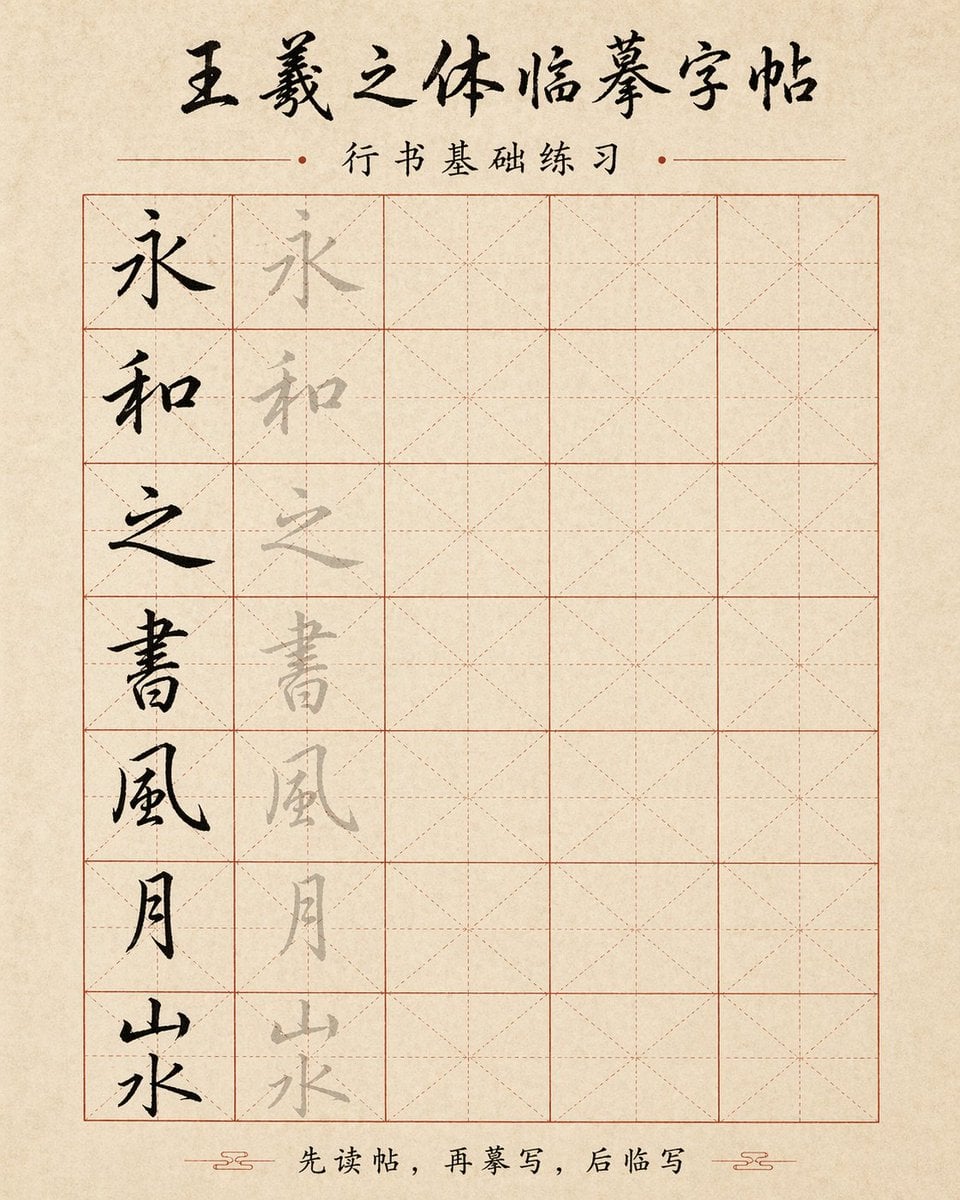 王羲之体临摹字帖
行书基础练习
永 永
和 和
之 之
書 書
風 風
月 月
山水 山水
先读帖，再摹写，后临写